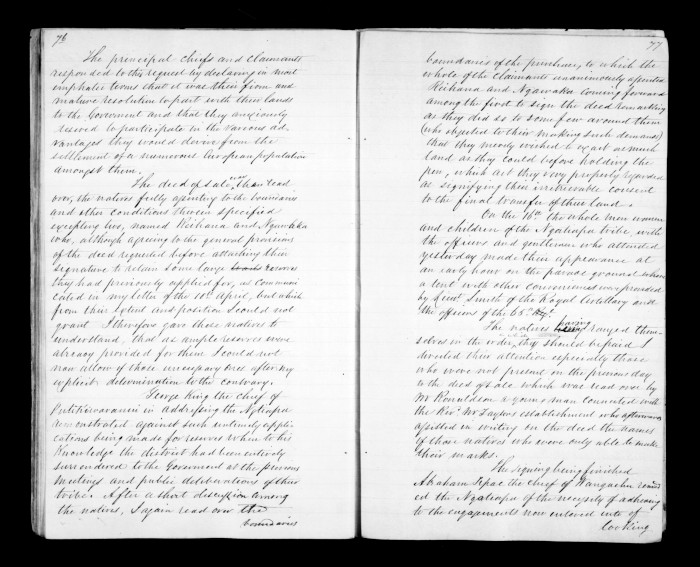 76
The principal chiefs and claimants
responded to this request by declaring in most
emphatic terms that it was their firm and
mature resolution to part with their lands
to the Government and that they anxiously
desired to participate in the various ad-
vantages they would derive from the
settlement of a numerous European population
amongst them.
The deed of sale was then read
over, the natives fully assenting to the boundaries
and other conditions therein specified
excepting two, named Keihana and Ngawaka
who, although agreeing to the general provisions
of the deed requested before attaching their
signature to retain some large reserves
they had previously applied for, as communi
cated in my letter of the 10th April, but which
from their extent and position I could not
grant. I therefore gave these natives to
understand, that as ample reserves were
already provided for them I could not
now allow of those unnecessary ones after my
explicit determination to the contrary.
George King the chief of
in addressing the Ngatiapa
demonstrated against such untimely appli
cations being made for reserves when to his
knowledge the district had been entirely
surrendered to the Government at the previous
meetings and public deliberations of their
tribe. After a short discussion among
the natives, I again read over the
boundaries
77
boundaries of the purchase, to which the
whole of the claimants unanimously assented
Keihana and Ngawaka coming forward
among the first to sign the deed remarking
as they did so to some few around them
(who objected to their making such demands)
that they merely wished to exact as much
land as they could before holding the
pen, which act they very properly regarded
as signifying their irretrievable consent
to the final transfer of their land.
On the 16th the whole men women
and children of the Ngatiapa tribe, with
the officers and gentlemen who attended
yesterday made their appearance at
an early hour on the parade ground where
a tent with other conveniences was provided
by Lieut. Smith of the Royal Artillery and
the officers of the 65th Regt.
The natives having ranged them-
selves in the order they should be paid I
directed their attention especially those
who were not present on the previous day
to the deed of sale which was read over by
Mr Ronaldson a young man connected with
the Revd. Mr Taylors establishment who afterwards
assisted in writing on the deed the names
of those natives who were only able to make
their marks.
The signing being finished
Abraham the chief of remind
ed the Ngatiapa of the necessity of adhering
to the engagements now entered into of
looking